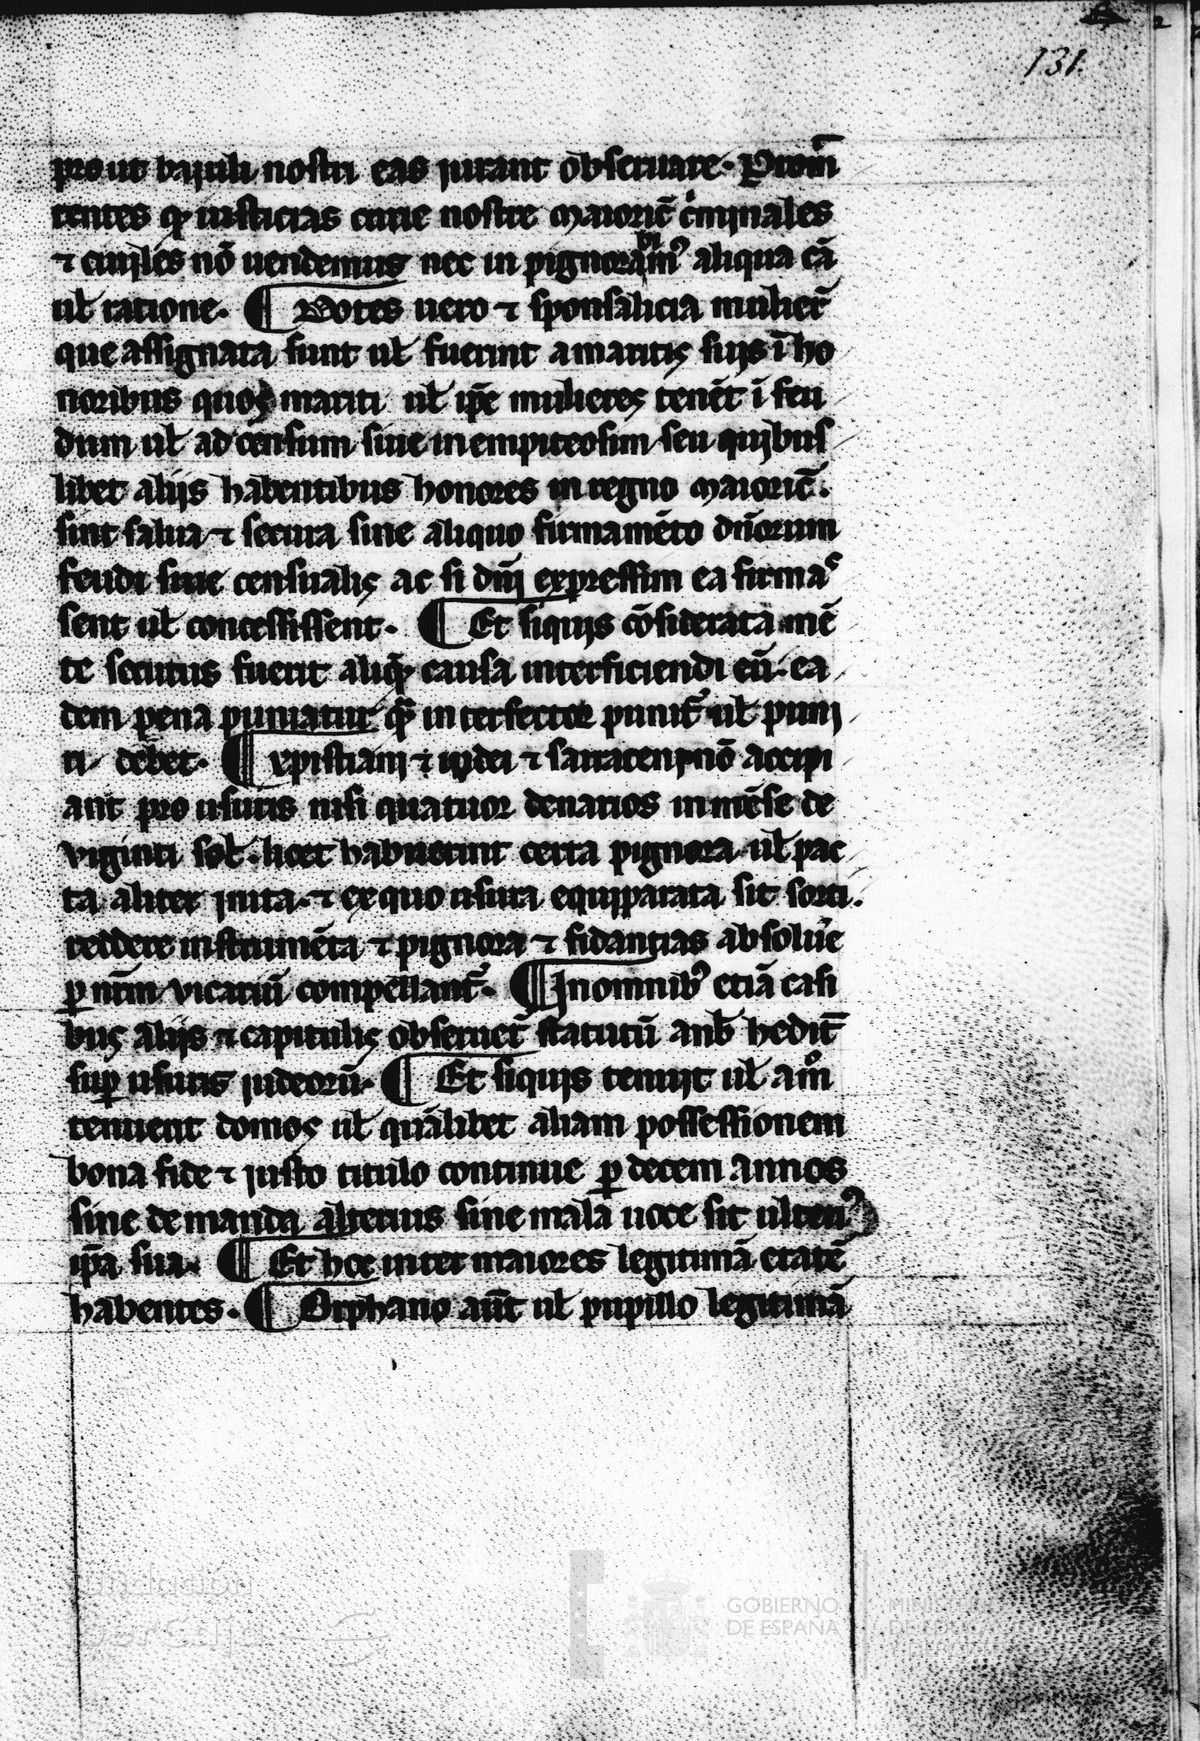 131.
prout bajuli nostri eas jurant obseruare. Promi
tentes qͥ iusticias curie nostre maioric̄ cͥminales
⁊ ciujles nō uendemus nec in pignorabimꝰ aliqua cā
ul̄ ratione. ¶ Dotes uero ⁊ sponsalicia mulier̄
que assignata sunt ul̄ fuerint a maritis suis ī ho
noribus quos mariti ul̄ ip̄e mulieres tenēt ī feu
dum ul̄ ad censum siue in empiteosim seu qujbus
libet alijs habentibus honores in regno maioric̄.
sint salua ⁊ secura sine aliquo firmamēto dn̄orum
feudi siue censualis ac si dn̄j expressim ea firmas
sent ul̄ concessissent. ¶ Et siqujs cōsiderata mē
te secutus fuerit aliqͣ causa interficiendi eū. ea
dem pena puniatur qͣ interfector punit̄ ul̄ punj
ri debet. ¶ xpistianj ⁊ iudei ⁊ sarracenj nō accipi
ant pro usuris nisi quatuor denarios in mēse de
viginti sol̄. licet habuerint certa pignora ul̄ pac
ta aliter jnita. ⁊ ex quo usura equiparata sit sorti.
reddere instrumēta ⁊ pignora ⁊ fidancias absolūe
ꝑ nr̄m vicariū compellant̄. ¶ In omnibꝰ etiā casi
bus alijs ⁊ capitulis obseruet̄ statutū a nob̄ hedit̄
suꝑ usuris judeorū. ¶ Et siqujs tenujt ul̄ amͦ
tenuerit domos ul̄ quālibet aliam possessionem
bona fide ⁊ justo titulo continue ꝑ decem annos
sine demanda alterius sine mala uoce sit ulteriꝰ
ip̄a sua. ¶ Et hoc inter maiores legitimā etatē
habentes. ¶ Orphano aūt ul̄ pupillo legitimā
fundación
ibercaja
GOBIERNO
DE ESPAÑA